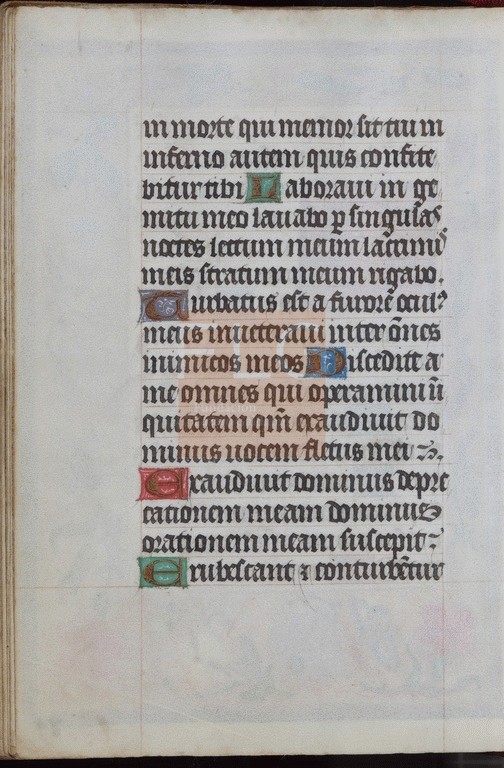 in morte qui memor sit tui in
inferno autem quis confite
bitur tibi Laboraui in ge
mitu meo lauabo p singulas
noctes lectum meum lacrimis
meis stratum meum rigabo.
Turbatus est a furore ocul9
meus inueteraui inter oēs
inimicos meos Discedite a
me omnes qui operamini ini
quitatem qm̄ exaudiuit do
minus uocem fletus mei
Exaudiuit dominus depre
cationem meam dominus
orationem meam suscepit
Erubescant ⁊ conturbētur
Fundación